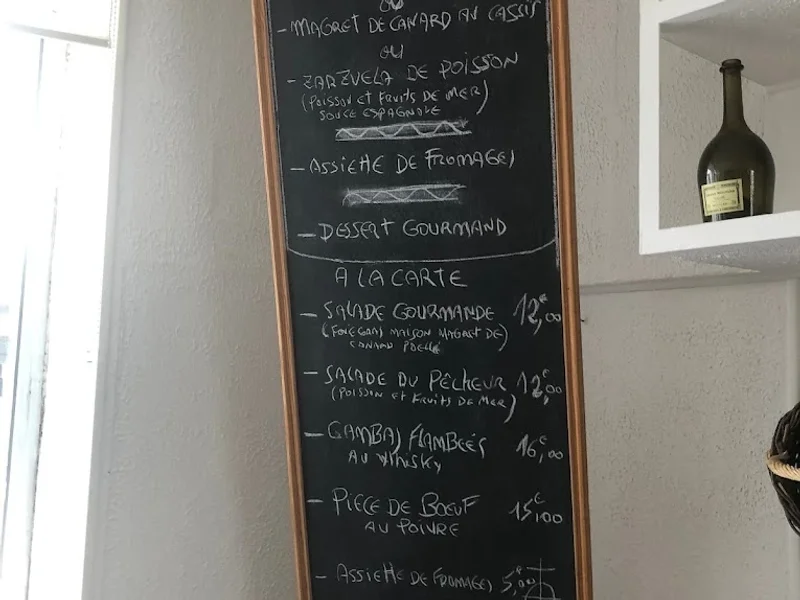 OU
- MAGRET DE CANARD AU CASSIS
OU
- ZARZUELA DE POISSON
(POISSON ET FRUITS DE MER)
SOUCE ESPAGNOLE
- ASSIETTE DE FROMAGES
- DESSERT GOURMAND
A LA CARTE
- SALADE GOURMANDE 12,00€
(FOIE GRAS MAISON MAGRET DE)
CANARD POELÉ
- SALADE DU PÊCHEUR 12,00€
(POISSON ET FRUITS DE MER)
- GAMBAS FLAMBEÉS 16,00€
AU WHISKY
- PIECE DE BOEUF 15,00€
AU POIVRE
- ASSIETTE DE FROMAGES 5,00€